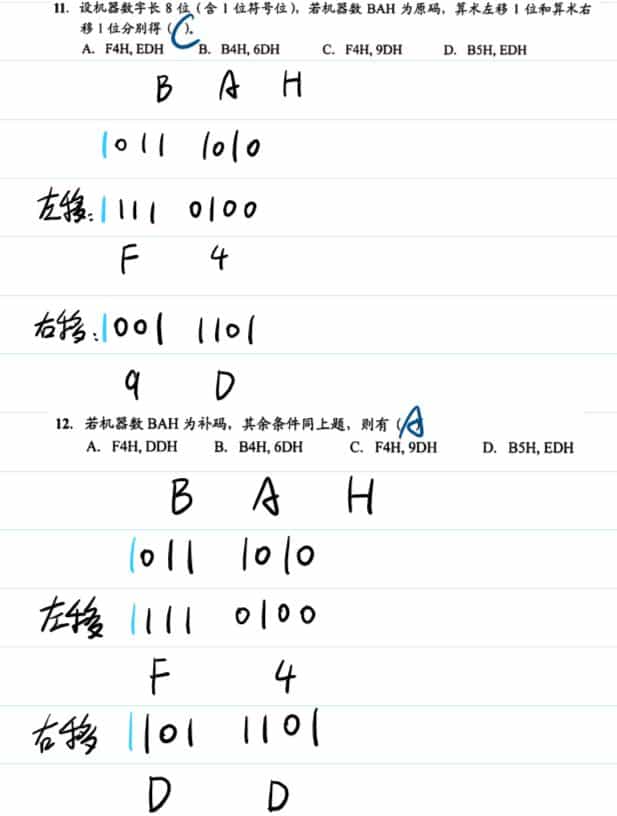 11. 设机器数字长 8 位（含 1 位符号位），若机器数 BAH 为原码，算术左移 1 位和算术右
移 1 位分别得（C）。
A. F4H, EDH B. B4H, 6DH C. F4H, 9DH D. B5H, EDH
B A H
1011 1010
左移：1111 0100
F 4
右移：1001 1101
9 D
12. 若机器数 BAH 为补码，其余条件同上题，则有（A
A. F4H, DDH B. B4H, 6DH C. F4H, 9DH D. B5H, EDH
B A H
1011 1010
左移 1111 0100
F 4
右移 1101 1101
D D